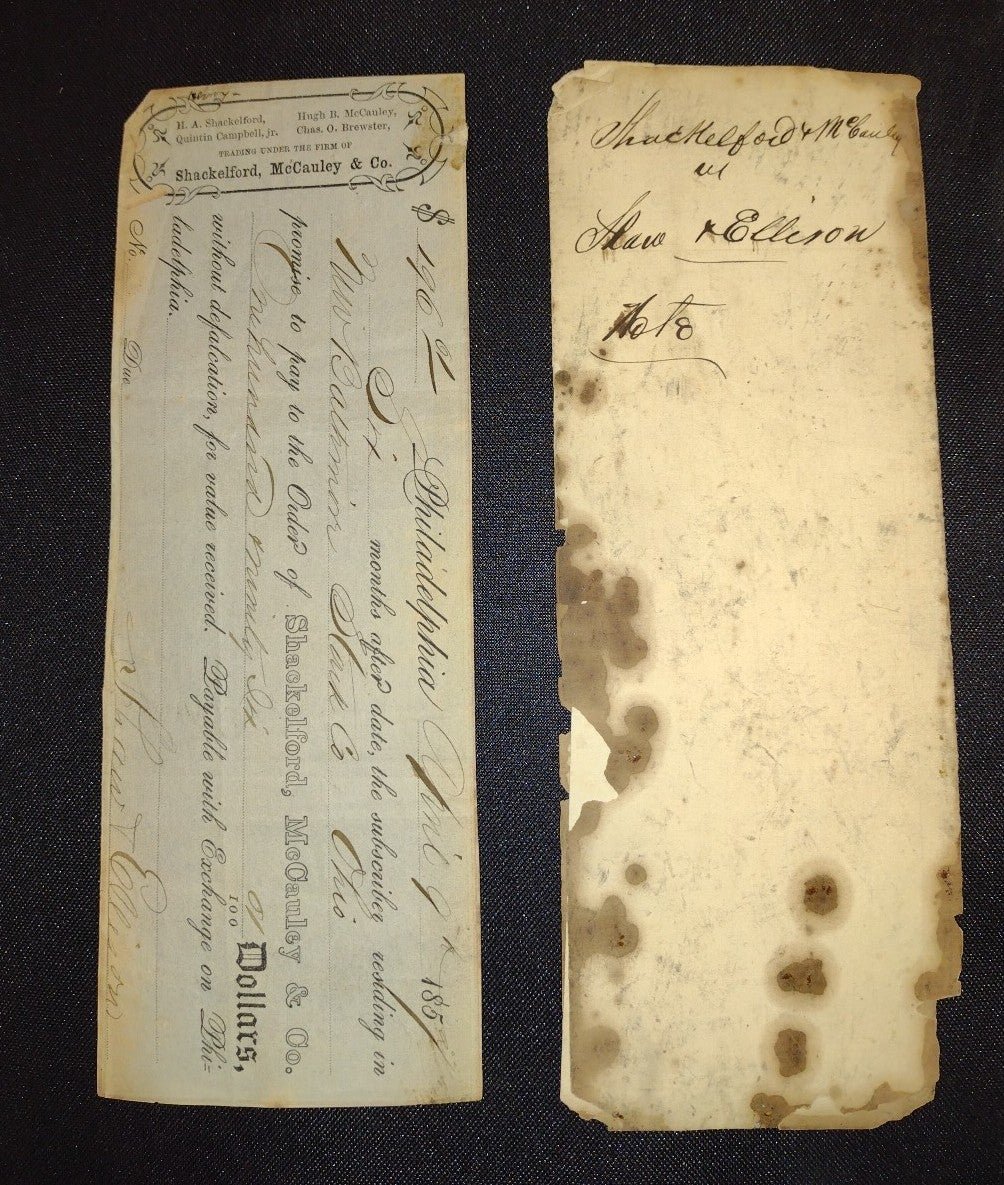 H. A. Shackelford, Hugh B. McCauley,
Quintin Campbell, jr. Chas. O. Brewster,
TRADING UNDER THE FIRM OF
Shackelford, McCauley & Co.
$ 196 01 Philadelphia, April 9th 1857
Six months after date, the subscriber, residing in
New Baltimore Stark Co Ohio
promise to pay to the Order of Shackelford, McCauley & Co.
One hundred & ninety Six 01/100 Dollars,
without defalcation, for value received. Payable with Exchange on Phi-
ladelphia.
No. Due
Shaw & Ellison
Shackelford & McCauley
vs
Shaw & Ellison
Note